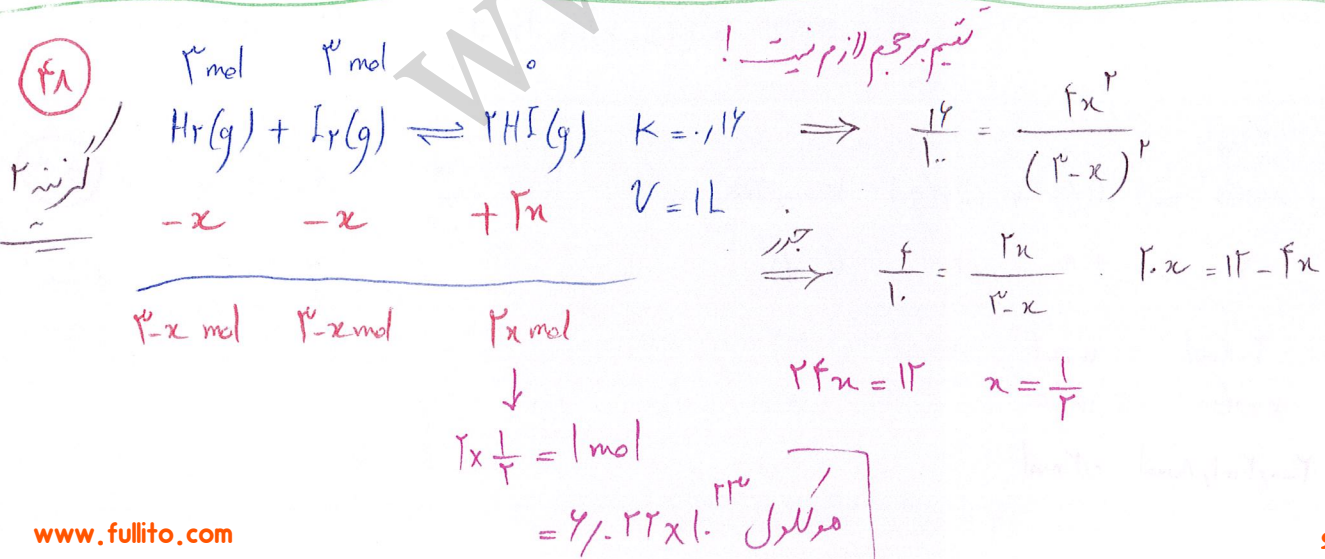 ۴۸
گزینه ۲
۳ mol ۳ mol ۰
H۲(g) + I۲(g) ⇌ ۲HI(g) K = ۰,۱۶
-x -x +۲x V = ۱L
۳-x mol ۳-x mol ۲x mol
↓
۲×۱/۲ = ۱ mol
= ۶/۰۲۲×۱۰^۲۳ مولکول
تقسیم بر حجم لازم نیست !
⇒ ۱۶/۱۰۰ = ۴x^۲/(۳-x)^۲
جذر ⇒ ۴/۱۰ = ۲x/۳-x . ۲۰x = ۱۲ - ۴x
۲۴x = ۱۲ x = ۱/۲
www.fullito.com